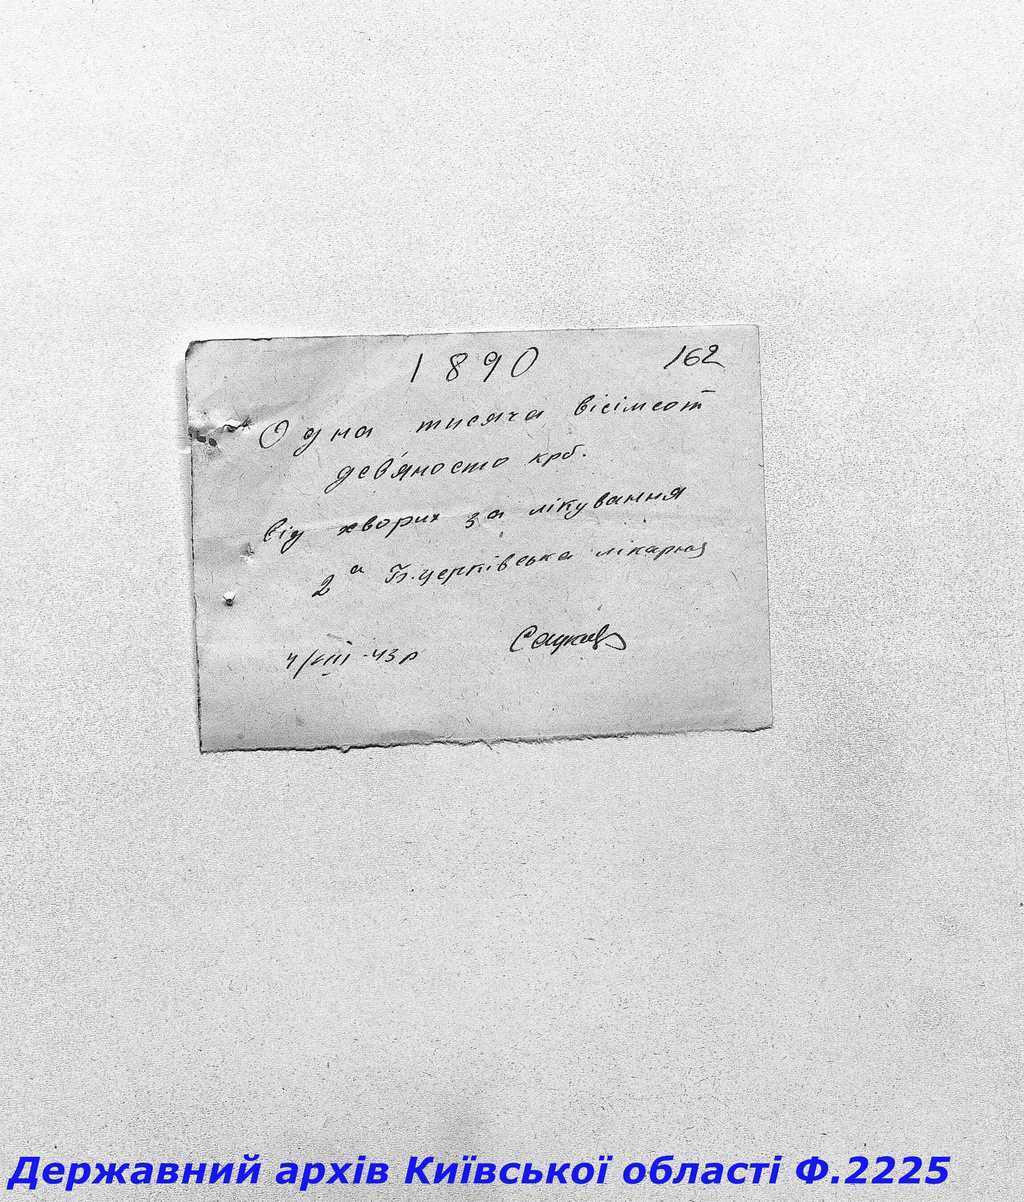 1890 162
Одна тисяча вісімсот
дев'яносто крб.
від хворих за лікування
2а Б.церківська лікарня
4/VIII-43р
Державний архів Київської області Ф.2225